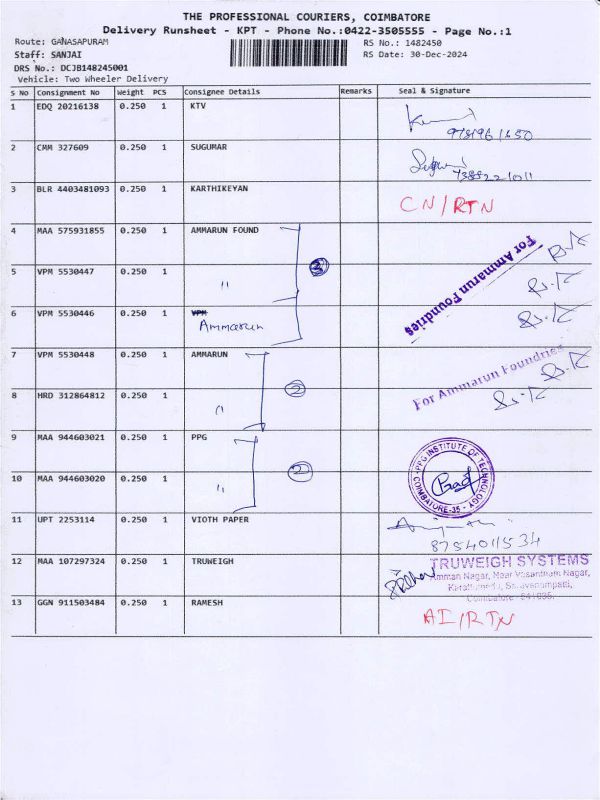 THE PROFESSIONAL COURIERS, COIMBATORE
Delivery Runsheet - KPT - Phone No.:0422-3505555 - Page No.:1
Route: GANASAPURAM
RS No.: 1482450
Staff: SANJAI
RS Date: 30-Dec-2024
DRS No.: DCJB148245001
Vehicle: Two Wheeler Delivery
S No Consignment No Weight PCS Consignee Details Remarks Seal & Signature
1 EDQ 20216138 0.250 1 KTV
2 CMM 327609 0.250 1 SUGUMAR
3 BLR 4403481093 0.250 1 KARTHIKEYAN CN/RTN
4 MAA 575931855 0.250 1 AMMARUN FOUND
For Ammarun Foundries
5 VPM 5530447 0.250 1 " 3
6 VPM 5530446 0.250 1 Ammarun
7 VPM 5530448 0.250 1 AMMARUN
For Ammarun Foundries
2
8 HRD 312864812 0.250 1 "
9 MAA 944603021 0.250 1 PPG
PPG INSTITUTE OF TECHNOLOGY
COIMBATORE-35
2
10 MAA 944603020 0.250 1 "
11 UPT 2253114 0.250 1 VIOTH PAPER
8754011534
12 MAA 107297324 0.250 1 TRUWEIGH
TRUWEIGH SYSTEMS
Amman Nagar, Near Vasantham Nagar,
Coimbatore - 641035.
13 GGN 911503484 0.250 1 RAMESH AI/RTN